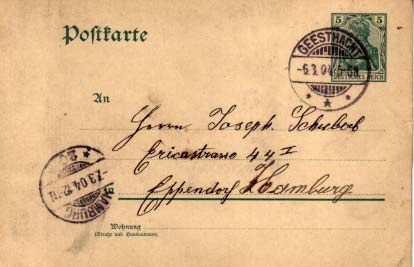 Postkarte
5 5
GEESTHACHT
-6.3.04.5-6N
REICH
An
Herrn Joseph Schubert
Ericastrasse 44 I
Eppendorf Hamburg
HAMBURG
-7.3.04.
Wohnung
(Straße und Hausnummer)